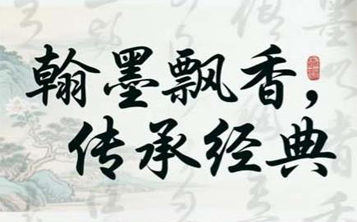 翰墨飘香，
传承经典